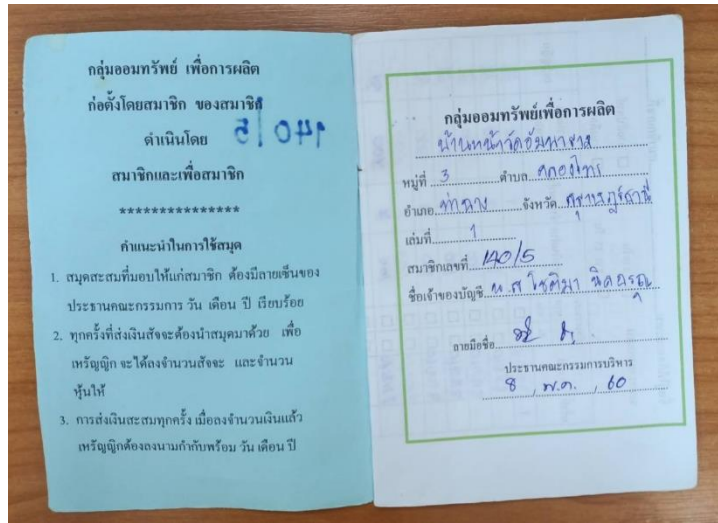 กลุ่มออมทรัพย์ เพื่อการผลิต
ก่อตั้งโดยสมาชิก ของสมาชิก
ดำเนินโดย
140/5
สมาชิกและเพื่อสมาชิก
***************
คำแนะนำในการใช้สมุด
1. สมุดสะสมที่มอบให้แก่สมาชิก ต้องมีลายเซ็นของ
ประธานคณะกรรมการ วัน เดือน ปี เรียบร้อย
2. ทุกครั้งที่ส่งเงินสัจจะต้องนำสมุดมาด้วย เพื่อ
เหรัญญิก จะได้ลงจำนวนสัจจะ และจำนวน
หุ้นให้
3. การส่งเงินสะสมทุกครั้ง เมื่อลงจำนวนเงินแล้ว
เหรัญญิกต้องลงนามกำกับพร้อม วัน เดือน ปี
กลุ่มออมทรัพย์เพื่อการผลิต
บ้านหน้าวัดอัมพาราม
หมู่ที่ 3 ตำบล คลองไทร
อำเภอ ท่าฉาง จังหวัด สุราษฎร์ธานี
เล่มที่ 1
สมาชิกเลขที่ 140/5
ชื่อเจ้าของบัญชี น.ส โชติมา
ลายมือชื่อ
ประธานคณะกรรมการบริหาร
8 , พ.ค. , 60